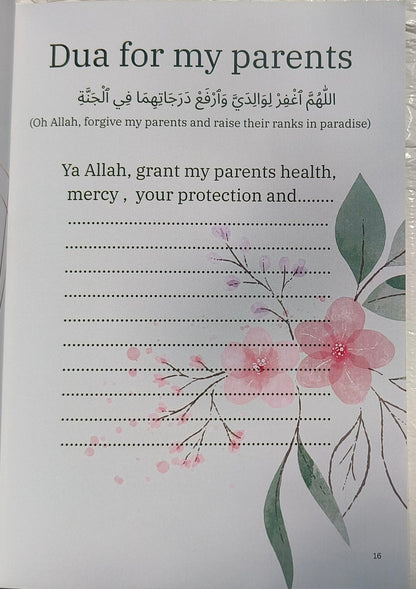 Dua for my parents
اللّٰهُمَّ ٱغْفِرْ لِوَالِدَيَّ وَٱرْفَعْ دَرَجَاتِهِمَا فِي ٱلْجَنَّةِ
(Oh Allah, forgive my parents and raise their ranks in paradise)
Ya Allah, grant my parents health,
mercy , your protection and........
16